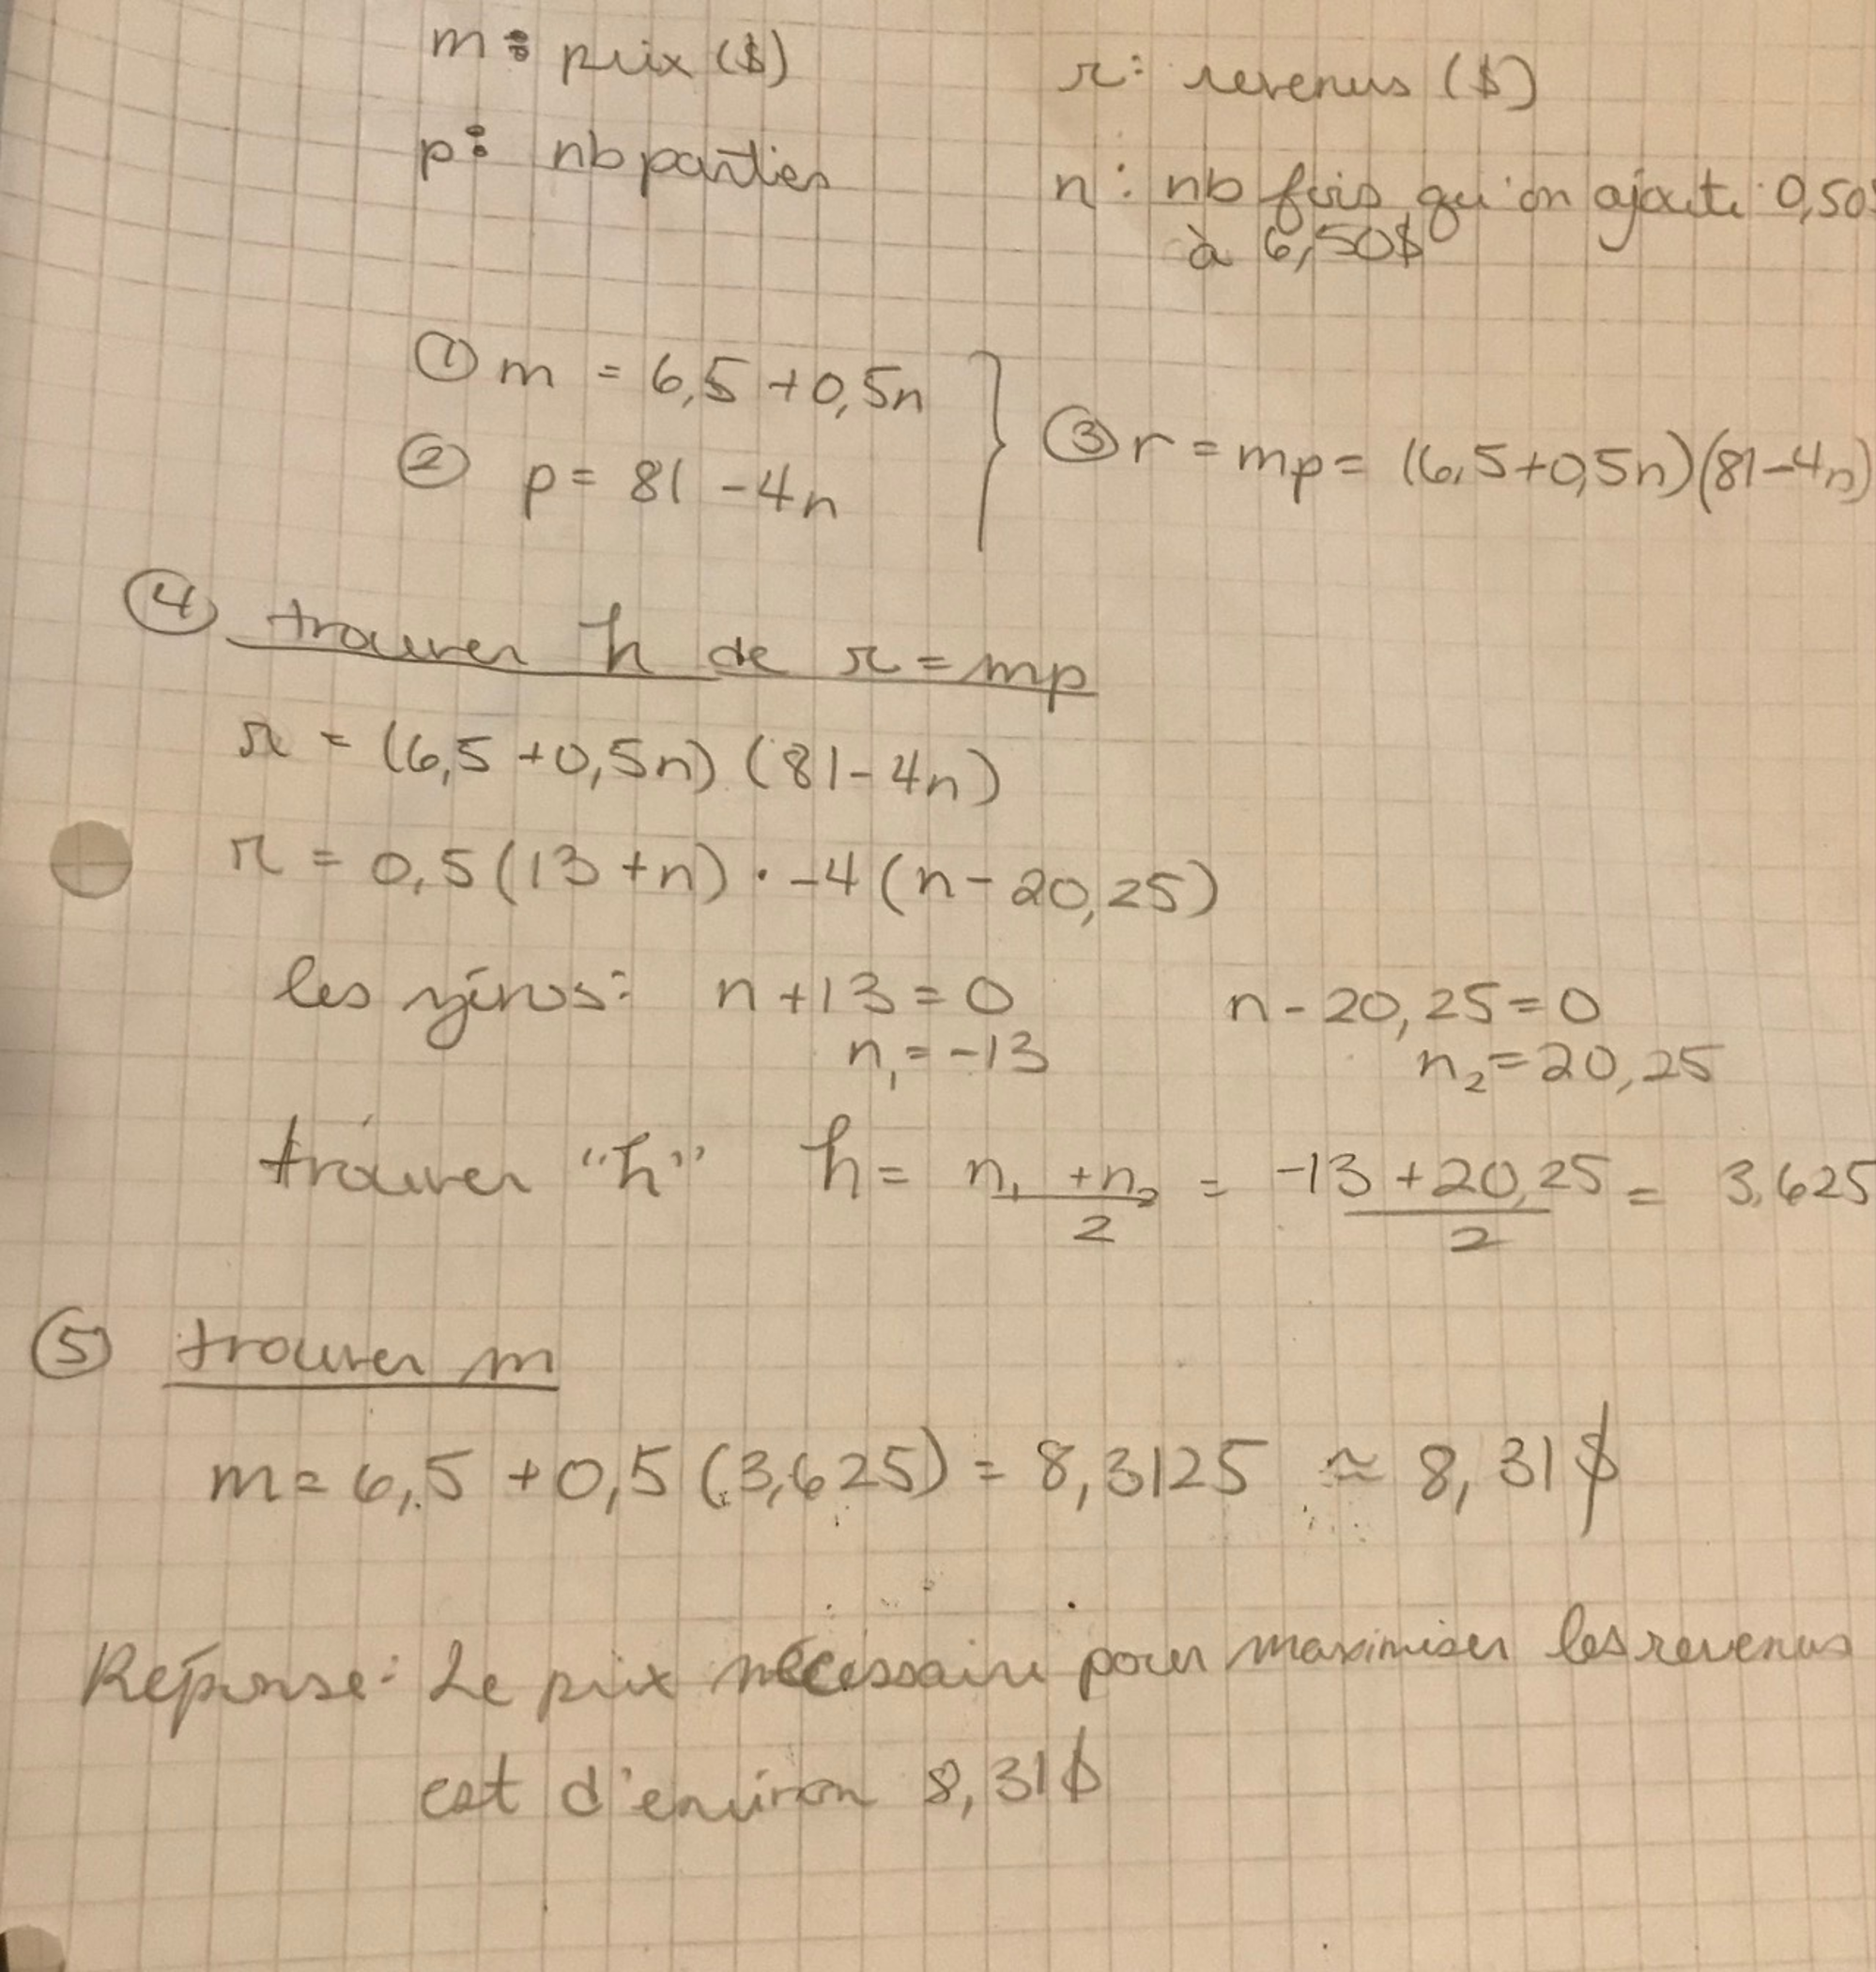 m : prix ($)
r : revenus ($)
p : nb parties
n : nb fois qu'on ajoute 0,50$
à 6,50$
① m = 6,5 + 0,5n
② p = 81 - 4n
③ r = mp = (6,5 + 0,5n)(81 - 4n)
④ trouver h de r = mp
r = (6,5 + 0,5n) (81 - 4n)
r = 0,5 (13 + n) · -4 (n - 20,25)
les zéros : n + 13 = 0 n - 20,25 = 0
n₁ = -13 n₂ = 20,25
trouver "h" h = (n₁ + n₂)/2 = (-13 + 20,25)/2 = 3,625
⑤ trouver m
m = 6,5 + 0,5 (3,625) = 8,3125 ≈ 8,31 $
Réponse : Le prix nécessaire pour maximiser les revenus
est d'environ 8,31$